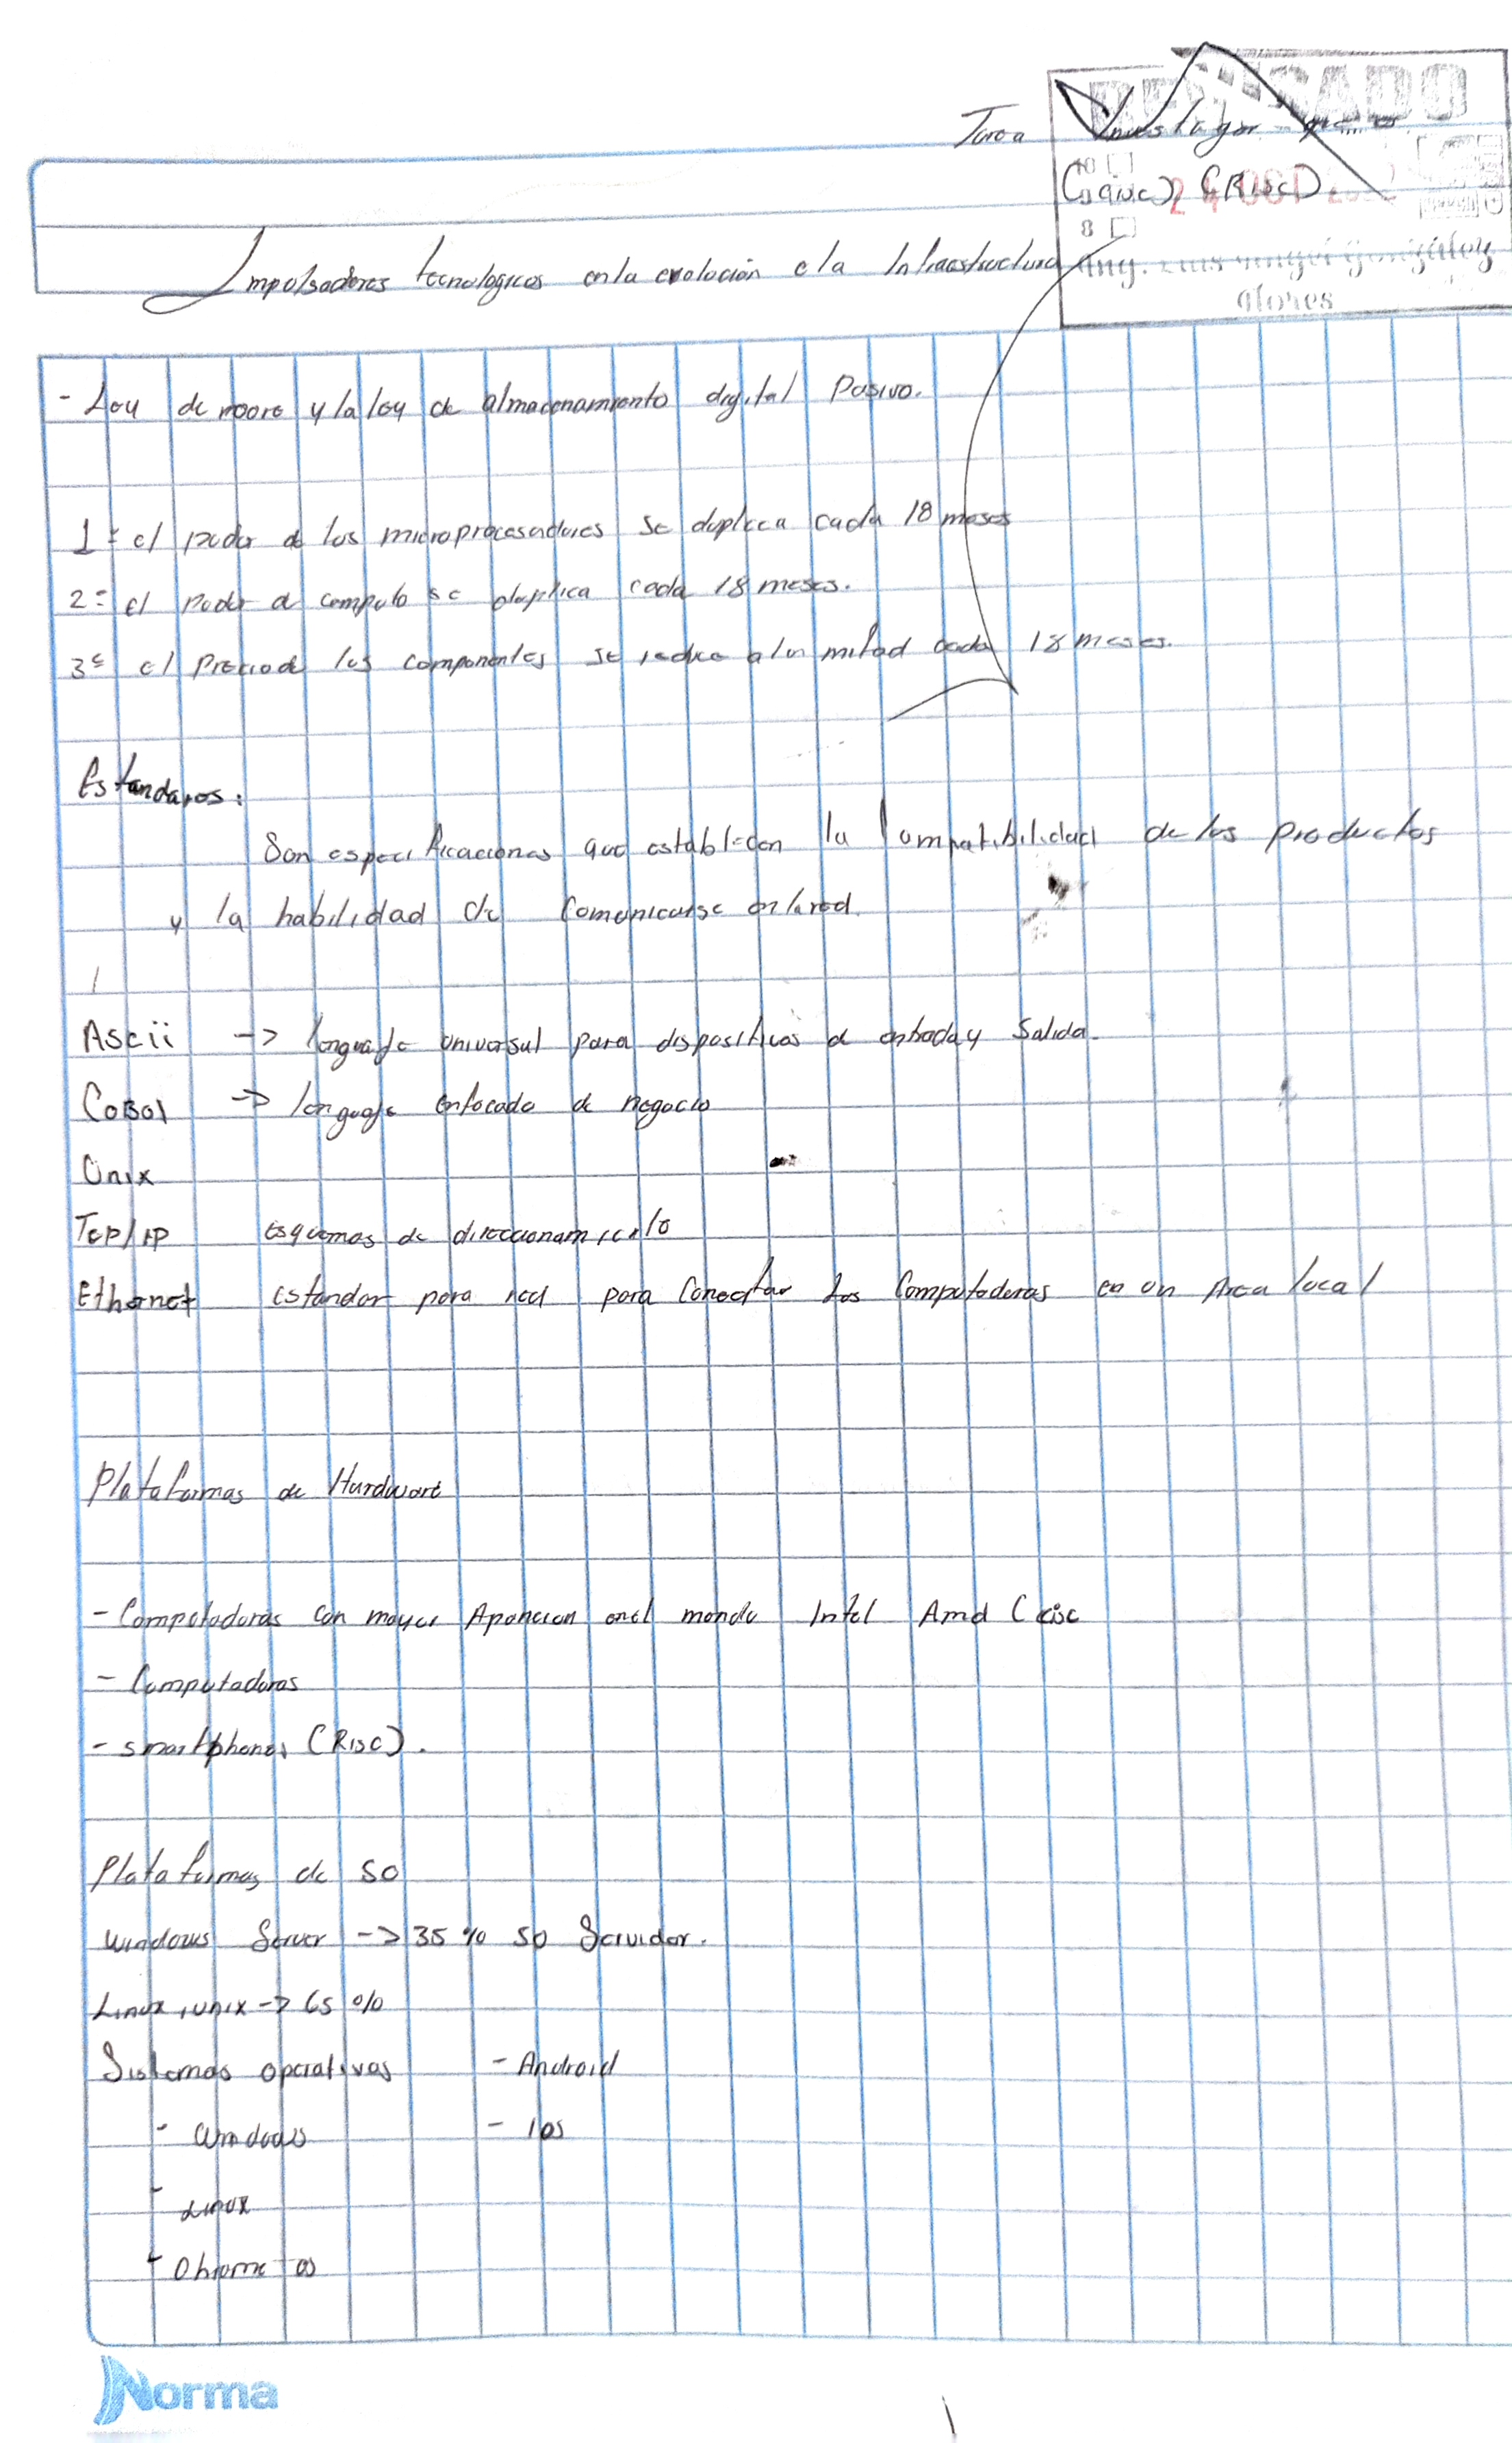 Tarea Investigar que es
REVISADO
10
(RISC)
24 OCT
8
Impulsadores tecnologicos en la evolución de la Infraestructura
Ing. Luis Angel González
Flores
- Ley de moore y la ley de almacenamiento digital Pasivo.
1= el poder de los microprocesadores se duplica cada 18 meses
2= el Poder de computo se duplica cada 18 meses.
3= el Precio de los componentes se reduce a la mitad cada 18 meses.
Estandares:
Son especificaciones que establecen la Compatibilidad de los productos
y la habilidad de Comunicarse en la red.
Ascii -> lenguaje universal para dispositivos de entrada y Salida.
CoBol -> lenguaje enfocado de negocio
Unix
TCP/IP Esquemas de direccionamiento
Ethernet Estandar para red para Conectar las Computadoras en un Area local
Plataformas de Hardware
- Computadoras con mayor Aparicion en el mondo Intel Amd (cisc
- Computadoras
- smartphones (RISC).
Plataformas de SO
windows Server -> 35 % SO Servidor.
Linux, unix -> 65 %
Sistemas operativas - Android
- windows - Ios
- Linux
- Chrome os
Norma